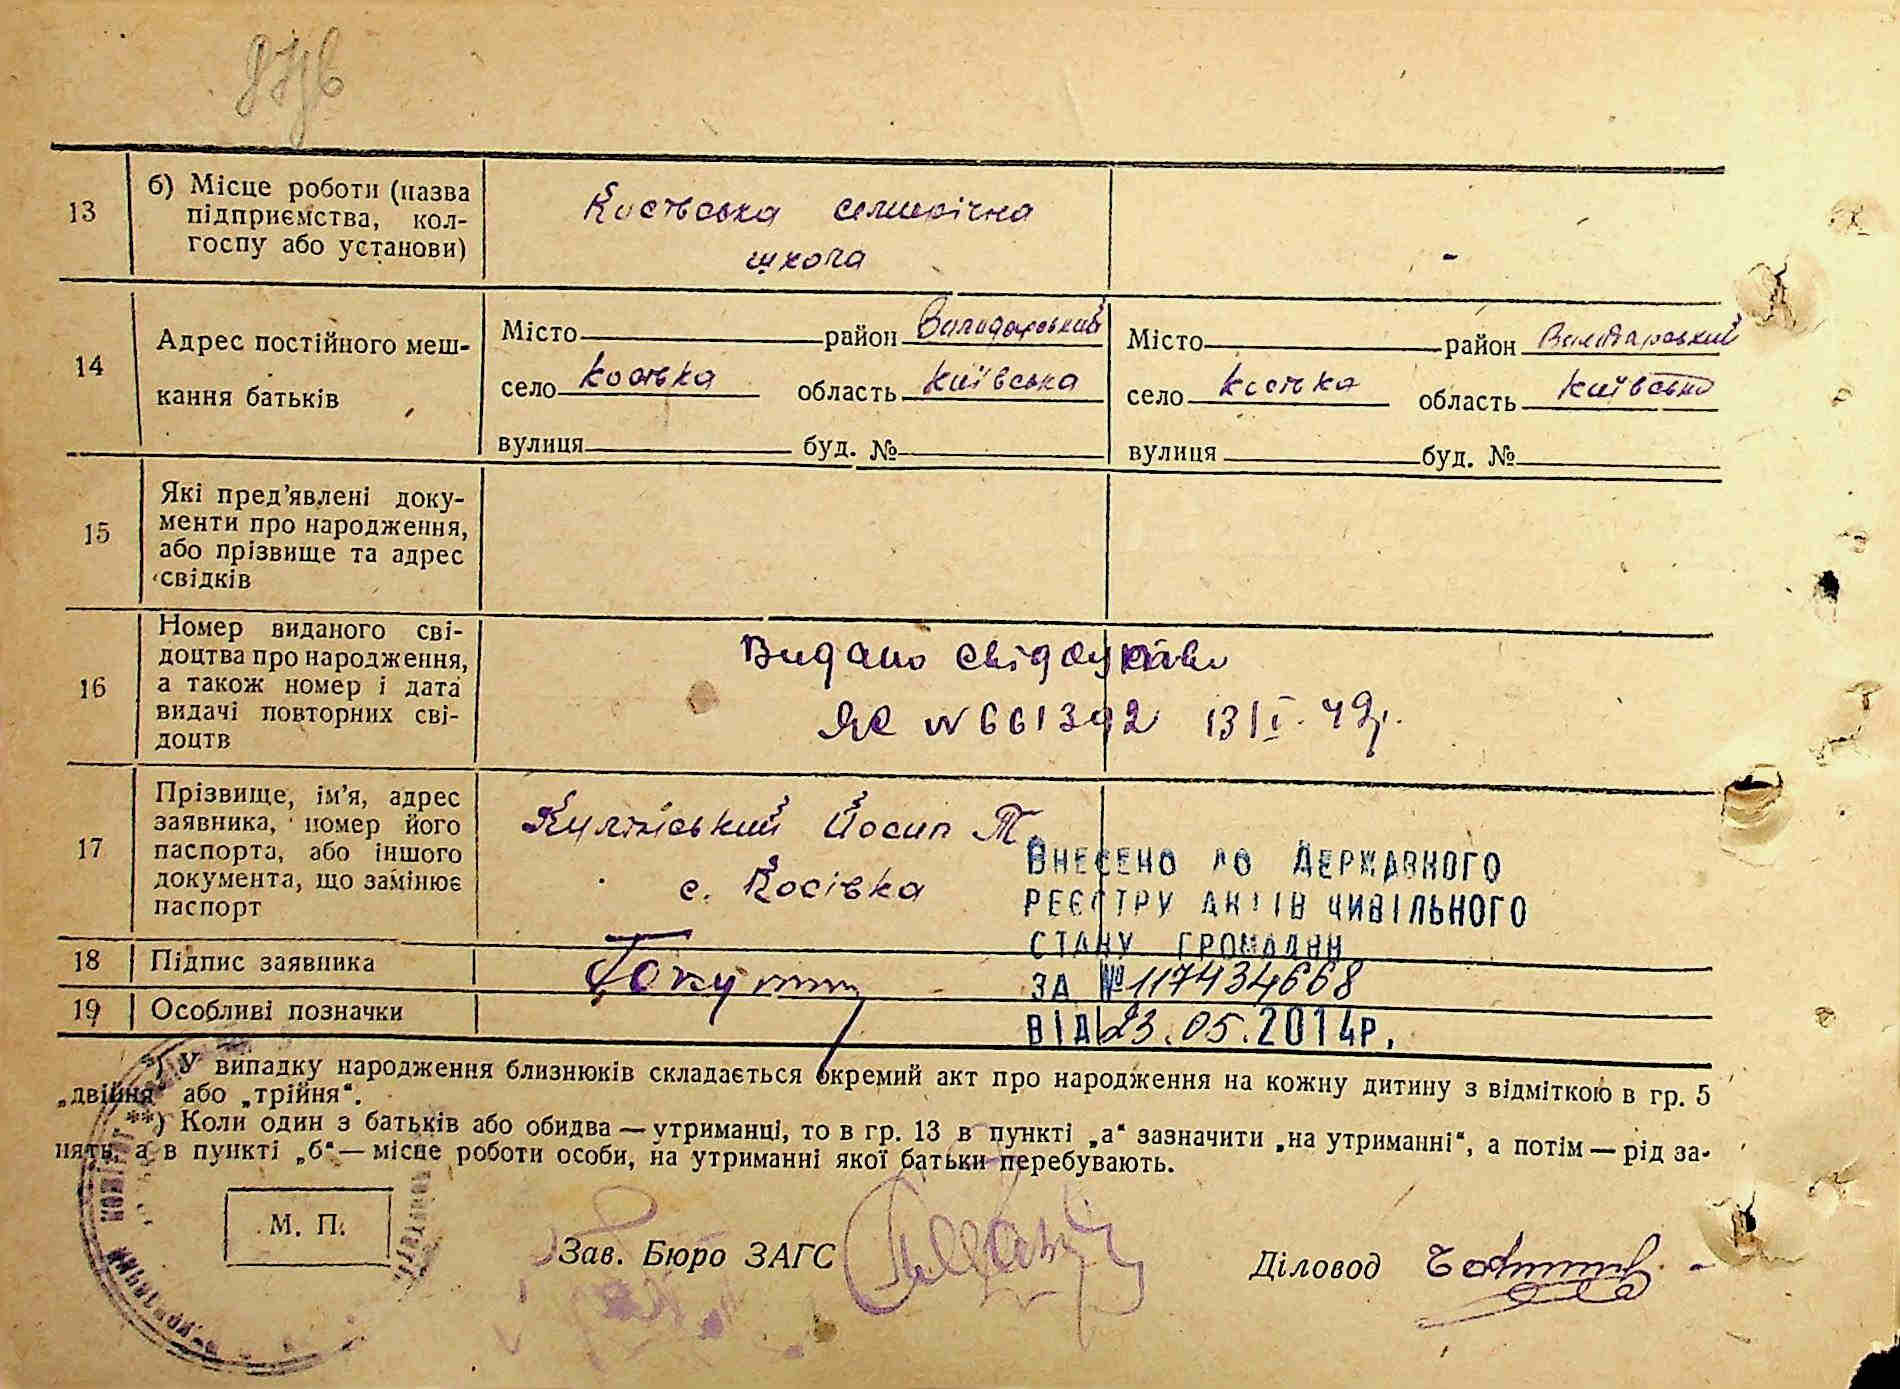 13
б) Місце роботи (назва
підприємства, кол-
госпу або установи)
Косівська семирічна
школа
-
14
Адрес постійного меш-
кання батьків
Місто район Володарський
село Косівка область Київська
вулиця буд. №
Місто район Володарський
село Косівка область Київська
вулиця буд. №
15
Які пред'явлені доку-
менти про народження,
або прізвище та адрес
свідків
16
Номер виданого сві-
доцтва про народження,
а також номер і дата
видачі повторних сві-
доцтв
Видано
ЯС № 661392 13/I. 49р.
17
Прізвище, ім'я, адрес
заявника, номер його
паспорта, або іншого
документа, що замінює
паспорт
Йосип Т.
с. Косівка
ВНЕСЕНО ДО ДЕРЖАВНОГО
РЕЄСТРУ АКТІВ ЦИВІЛЬНОГО
СТАНУ ГРОМАДЯН
ЗА №117434668
ВІД 23.05.2014р.
18
Підпис заявника
19
Особливі позначки
*) У випадку народження близнюків складається окремий акт про народження на кожну дитину з відміткою в гр. 5
„двійня“ або „трійня“.
**) Коли один з батьків або обидва — утриманці, то в гр. 13 в пункті „а“ зазначити „на утриманні“, а потім — рід за-
нять, а в пункті „б“ — місце роботи особи, на утриманні якої батьки перебувають.
М. П.
Зав. Бюро ЗАГС
Діловод